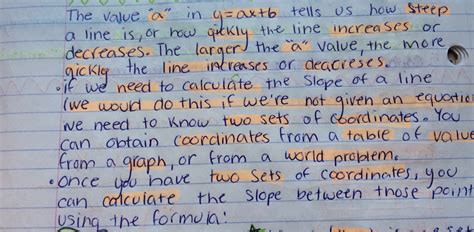 The value "a" in y=ax+b tells us how steep
a line is, or how qickly the line increases or
decreases. The larger the "a" value, the more
qickly the line increases or deacreses.
• if we need to calculate the slope of a line
(we would do this if we're not given an equation
we need to know two sets of coordinates. You
can obtain coordinates from a table of value
from a graph, or from a world problem.
• Once you have two sets of coordinates, you
can calculate the slope between those point
using the formula: